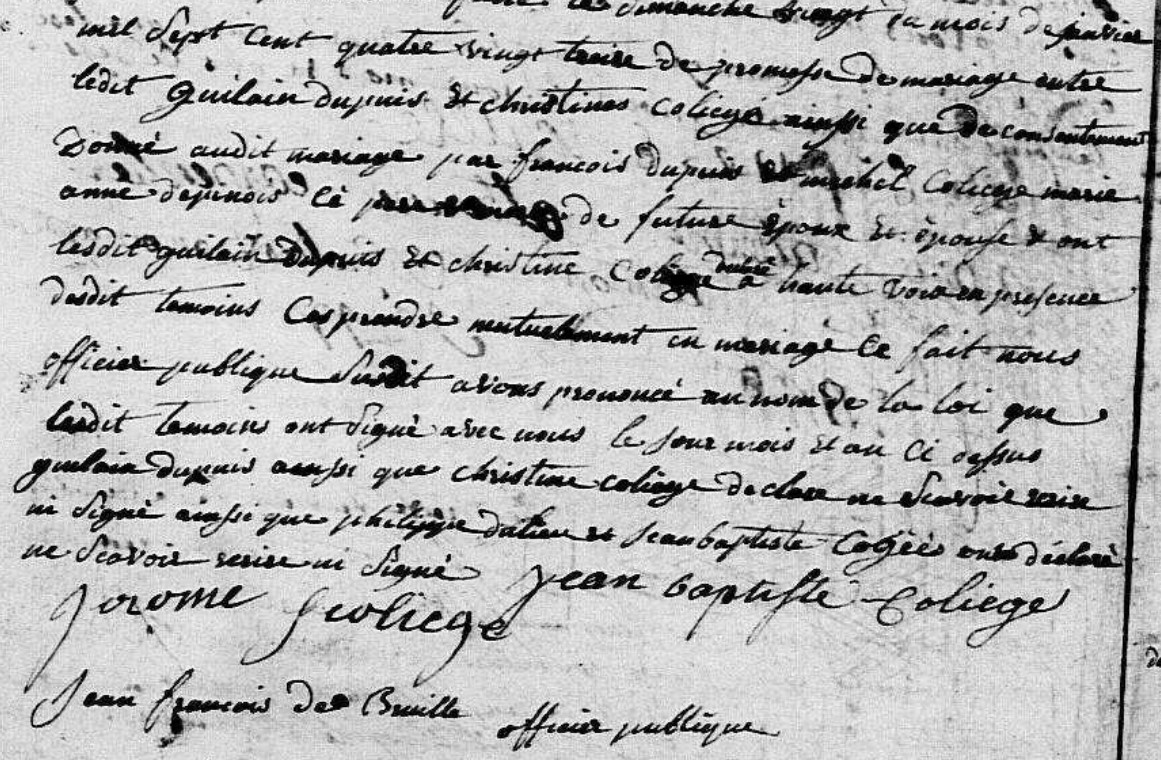 le dimanche vingt du mois de janvier
mil Sept Cent quatre vingt treize de promesse de mariage entre
ledit Guilain dupuis Et christine Coliege ainsi que de consentement
Donné audit mariage par francois dupuis et michel Coliege marie
anne depinois Cé de future Epoux Et épouse & ont
lesdit guilain Dupuis Et christine Coliege à haute Voix en presence
desdit temoins Ces prendre mutuelement en mariage Ce fait nous
officier publique Susdit avons prononcé au nom de la loi que
lesdit temoins ont Signé avec nous le jour mois Et an Ci dessus
guilain dupuis ainssi que Christine coliege declare ne Scavoir ecrire
ni Signé ainssi que philippe et jean baptiste ont déclaré
ne Scavoir ecrire ni Signé
jorome Scoliege jean baptiste Coliege
Jean francois de Bruille officier publique